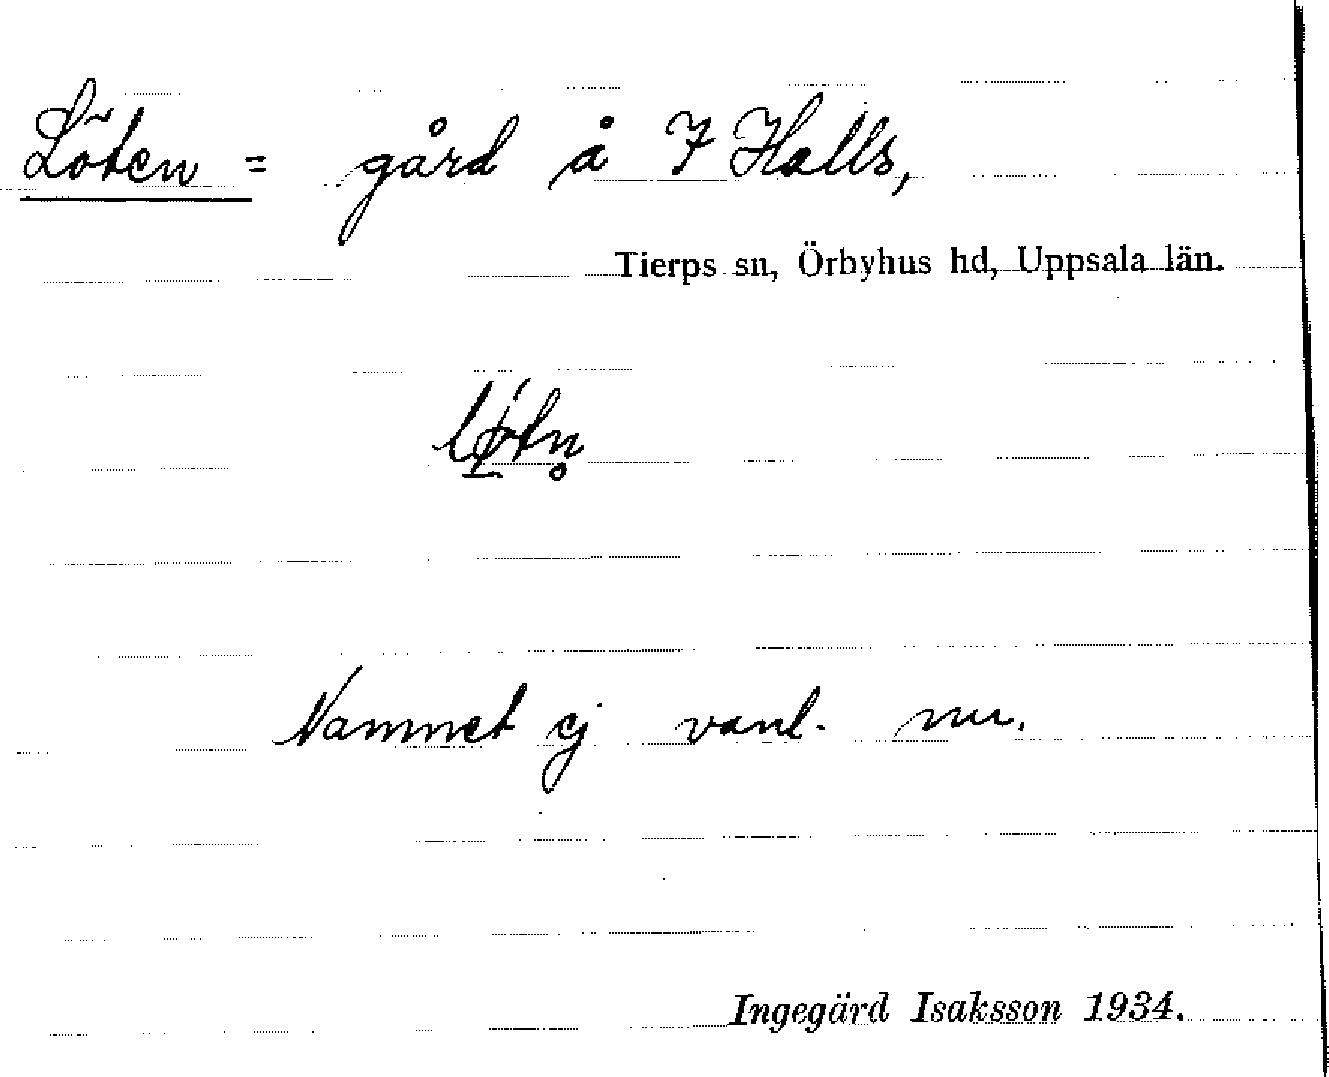 Löten = gård å 7 Halls,
Tierps sn, Örbyhus hd, Uppsala län.
Namnet ej vanl. nu.
Ingegärd Isaksson 1934.